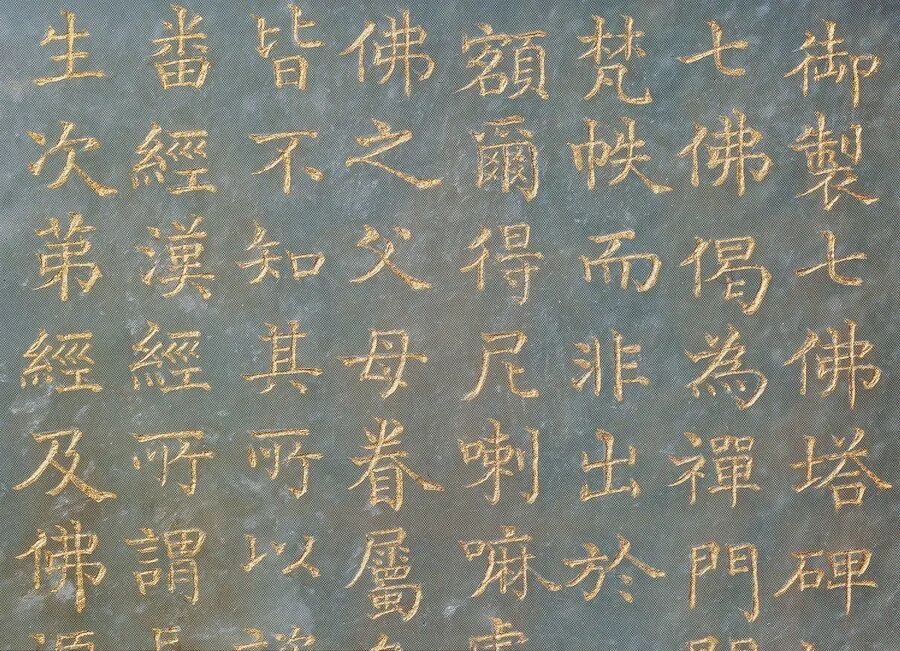 御製七佛塔碑
七佛偈為禪門
梵帙而非出於
額爾得尼喇嘛
佛之父母眷屬
皆不知其所以
畨經漢經所謂
生次苐經及佛